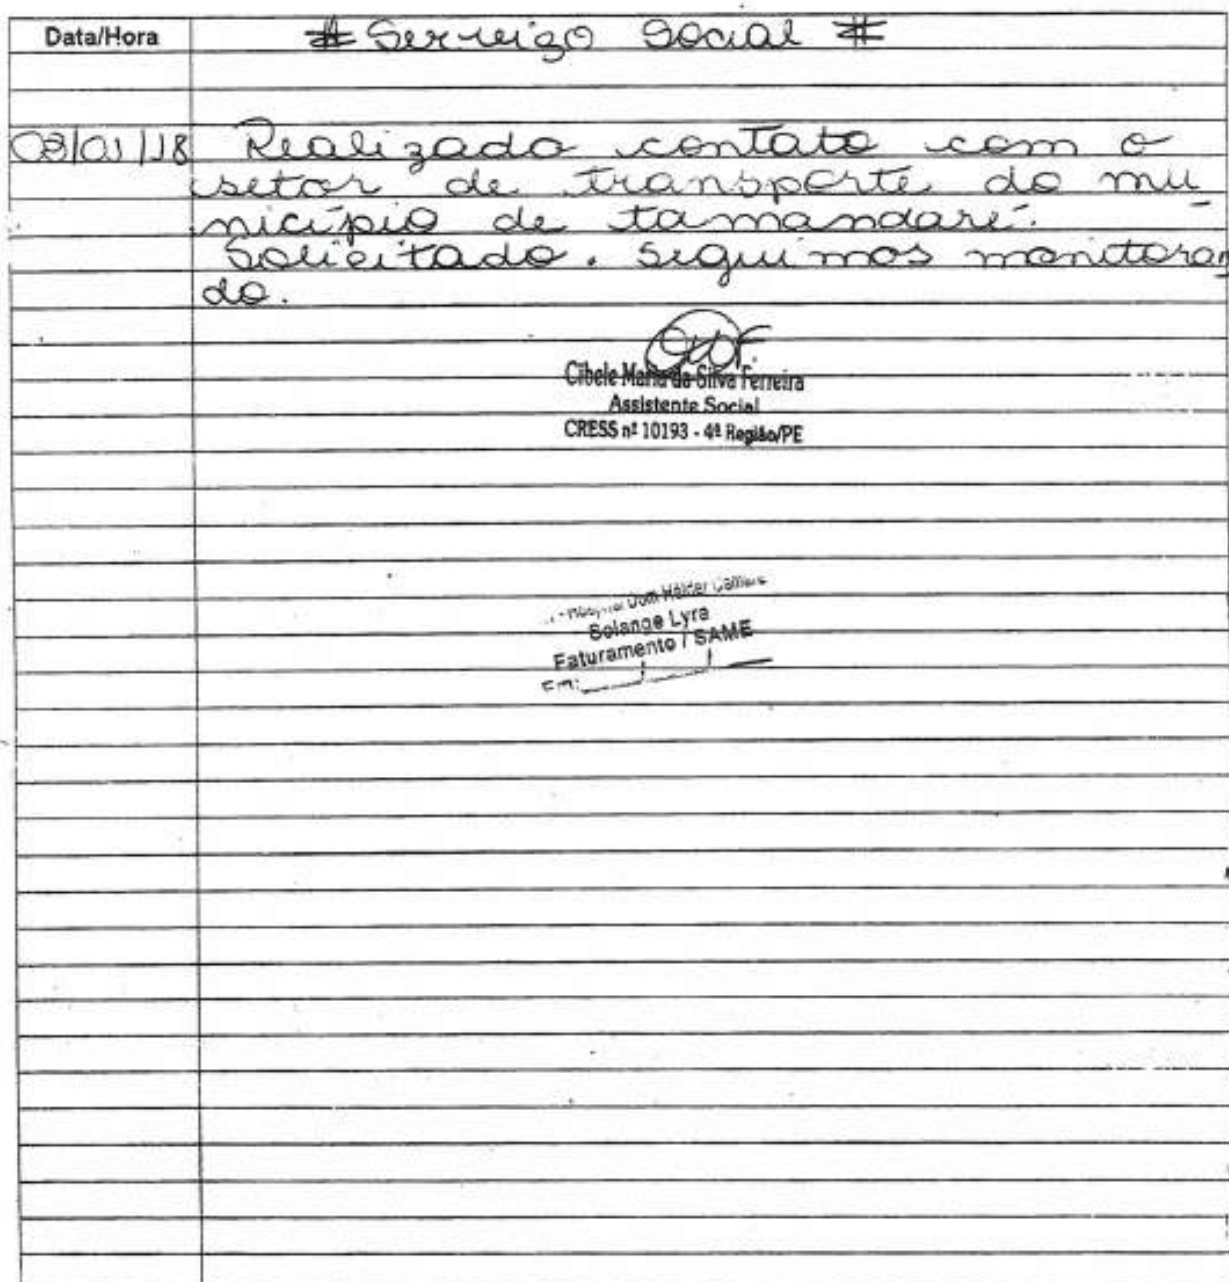 Data/Hora # Serviço Social #
03/01/18 Realizado contato com o
setor de transporte do mu
nicípio de tamandaré.
Solicitado. Seguimos monitoran
do.
Cibele Maria da Silva Ferreira
Assistente Social
CRESS nº 10193 - 4ª Região/PE
Dom Hélder Câmara
Solange Lyra
Faturamento / SAME
Em: / /